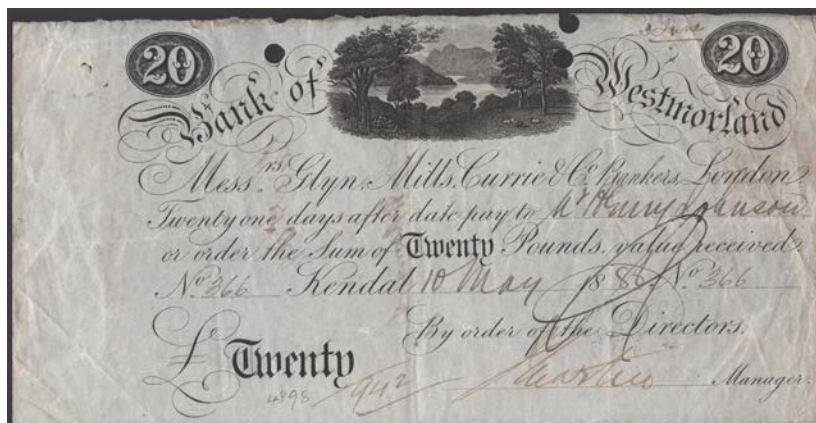 20 3 June 20
Bank of Westmorland
Messrs. Glyn, Mills, Currie & Co. Bankers, London.
Twenty one days after date pay to Mr Henry Johnson
or order the Sum of Twenty Pounds, value received.
No. 366 Kendal 10 May 188 No. 366
By order of the Directors.
£ Twenty
4898 942 Manager.